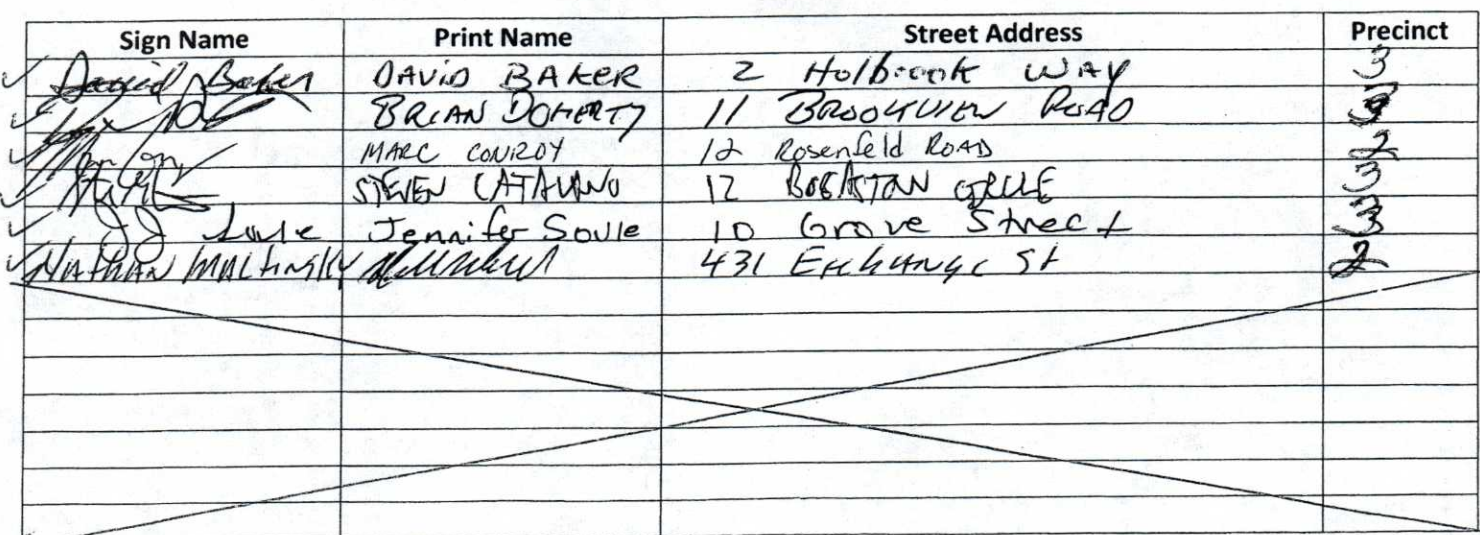 Sign Name Print Name Street Address Precinct
David Baker DAVID BAKER 2 Holbrook WAY 3
BRIAN DOHERTY 11 BROOKVIEW ROAD 3
MARC CONROY 12 Rosenfeld ROAD 2
STEVEN CATALANO 12 BOGASTOW CIRCLE 3
JJ Soule Jennifer Soule 10 Grove Street 3
NATHAN MATTINGLY 431 EXCHANGE St 2